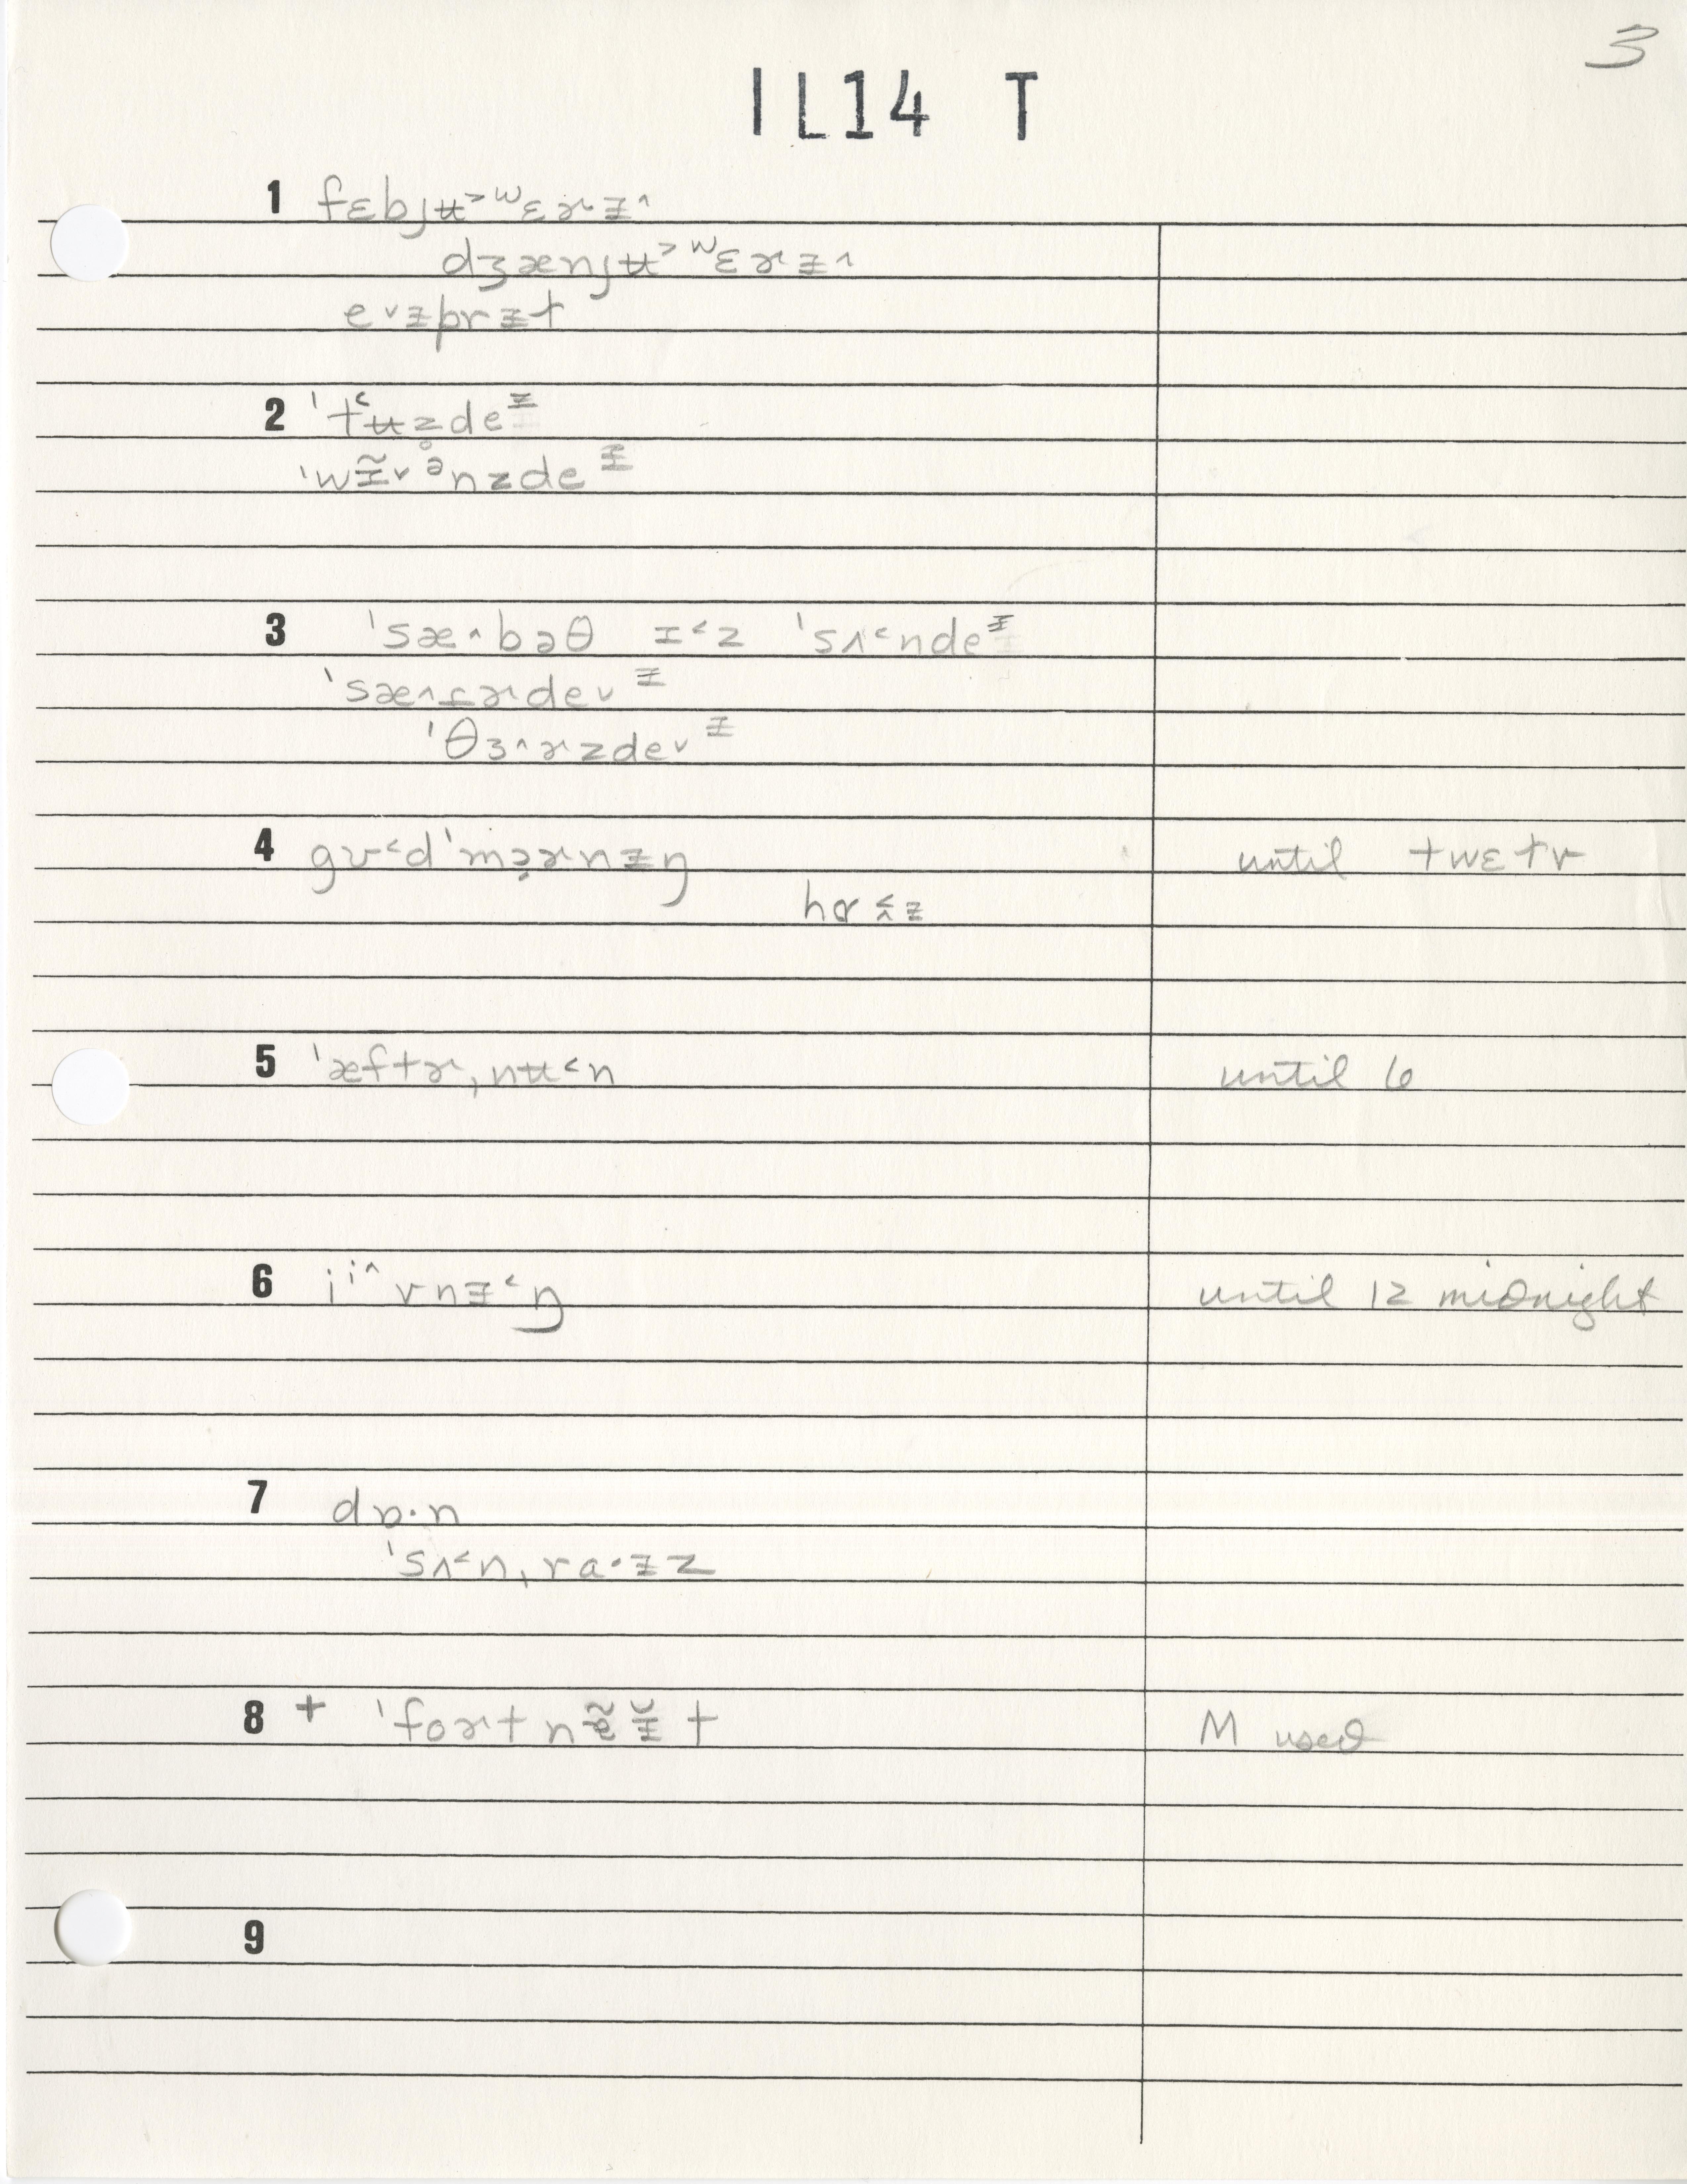 3
IL14 T
1 fɛbjʉ˃ʷɛɚᵻ˄
dʒænjʉ˃ʷɛɚᵻ˄
e˅ᵻprᵻt
2 ˈt˂ʉzdeᵻ
ˈwɪ̃˅ə̊nzdeᵻ
3 ˈsæ˄bəθ ɪ˂z ˈsʌ˂ndeᵻ
ˈsæ˄ɾɚde˅ᵻ
ˈθɜ˄ɚzde˅ᵻ
4 gʊ˂dˈmɔ̣ɚnᵻŋ until twɛtv
hɑᵻ˂˄z
5 ˈæftɚˌnʉ˂n until 6
6 iⁱ˄vnᵻ˂ŋ until 12 midnight
7 dɒ·n
ˈsʌ˂nˌra·ᵻz
8 + ˈfoɚt nẽᵻ̆t M used
9